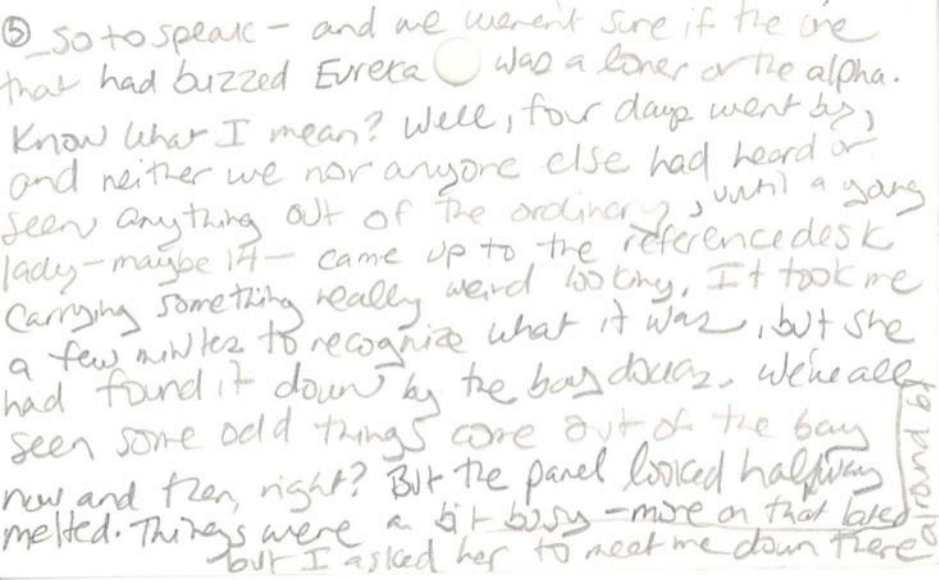 ⑤ so to speak – and we weren't sure if the one
that had buzzed Eureka was a loner or the alpha.
Know what I mean? Well, four days went by,
and neither we nor anyone else had heard or
seen anything out of the ordinary, until a young
lady – maybe 14 – came up to the reference desk
carrying something really weird looking. It took me
a few minutes to recognize what it was, but she
had found it down by the bay. We've all
seen some odd things come out of the bay
now and then, right? But the panel looked halfway
melted. Things were a bit busy – more on that later
but I asked her to meet me down there